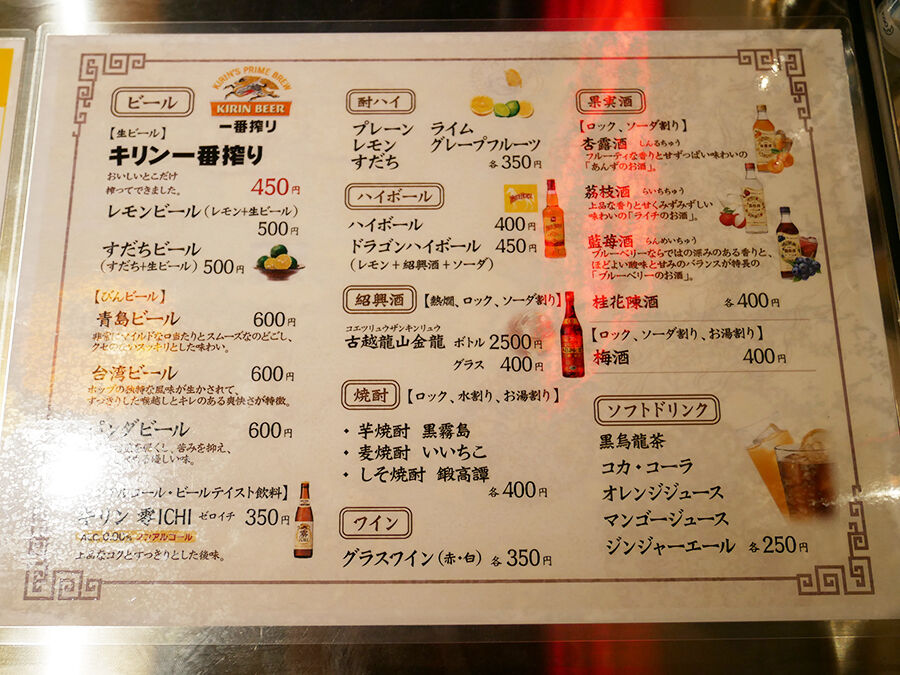 ビール
KIRIN'S PRIME BREW
KIRIN BEER
一番搾り
【生ビール】
キリン一番搾り
おいしいとこだけ
搾ってできました。
450円
レモンビール（レモン+生ビール）
500円
すだちビール
（すだち+生ビール）500円
【びんビール】
青島ビール 600円
非常にマイルドな口当たりとスムーズなのどごし、
クセのないスッキリとした味わい。
台湾ビール 600円
ホップの独特な風味が生かされてて、
すっきりした喉越しとキレのある爽快さが特徴。
パンダビール 600円
苦みを抑え、
優しい味。
アルコール・ビールテイスト飲料】
キリン 零ICHI ゼロイチ 350円
ALC.0.00% ノンアルコール
上品なコクとすっきりとした後味。
酎ハイ
プレーン ライム
レモン グレープフルーツ
すだち 各350円
ハイボール
ハイボール 400円
ドラゴンハイボール 450円
（レモン+紹興酒+ソーダ）
紹興酒 【熱燗、ロック、ソーダ割り】
コエツリュウザンキンリュウ
古越龍山金龍 ボトル 2500円
グラス 400円
焼酎 【ロック、水割り、お湯割り】
・芋焼酎 黒霧島
・麦焼酎 いいちこ
・しそ焼酎 鍛高譚
各400円
ワイン
グラスワイン（赤・白） 各350円
果実酒
【ロック、ソーダ割り】
杏露酒 しんるちゅう
フルーティな香りと甘ずっぱい味わいの
「あんずのお酒」。
茘枝酒 らいちちゅう
上品な香りと甘くみずみずしい
味わいの「ライチのお酒」。
藍苺酒 らんめいちゅう
ブルーベリーならではの深みのある香りと、
ほどよい酸味と甘みのバランスが特長の
「ブルーベリーのお酒」。
桂花陳酒 各400円
【ロック、ソーダ割り、お湯割り】
梅酒 400円
ソフトドリンク
黒烏龍茶
コカ・コーラ
オレンジジュース
マンゴージュース
ジンジャーエール 各250円